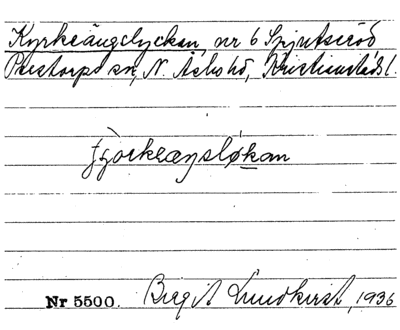 Kyrkeängslyckan, nr 6 Spjutseröd
Perstorps sn, N. Åsbo hd, Kristianstads l.
Nr 5500. Birgit Lundkvist, 1936